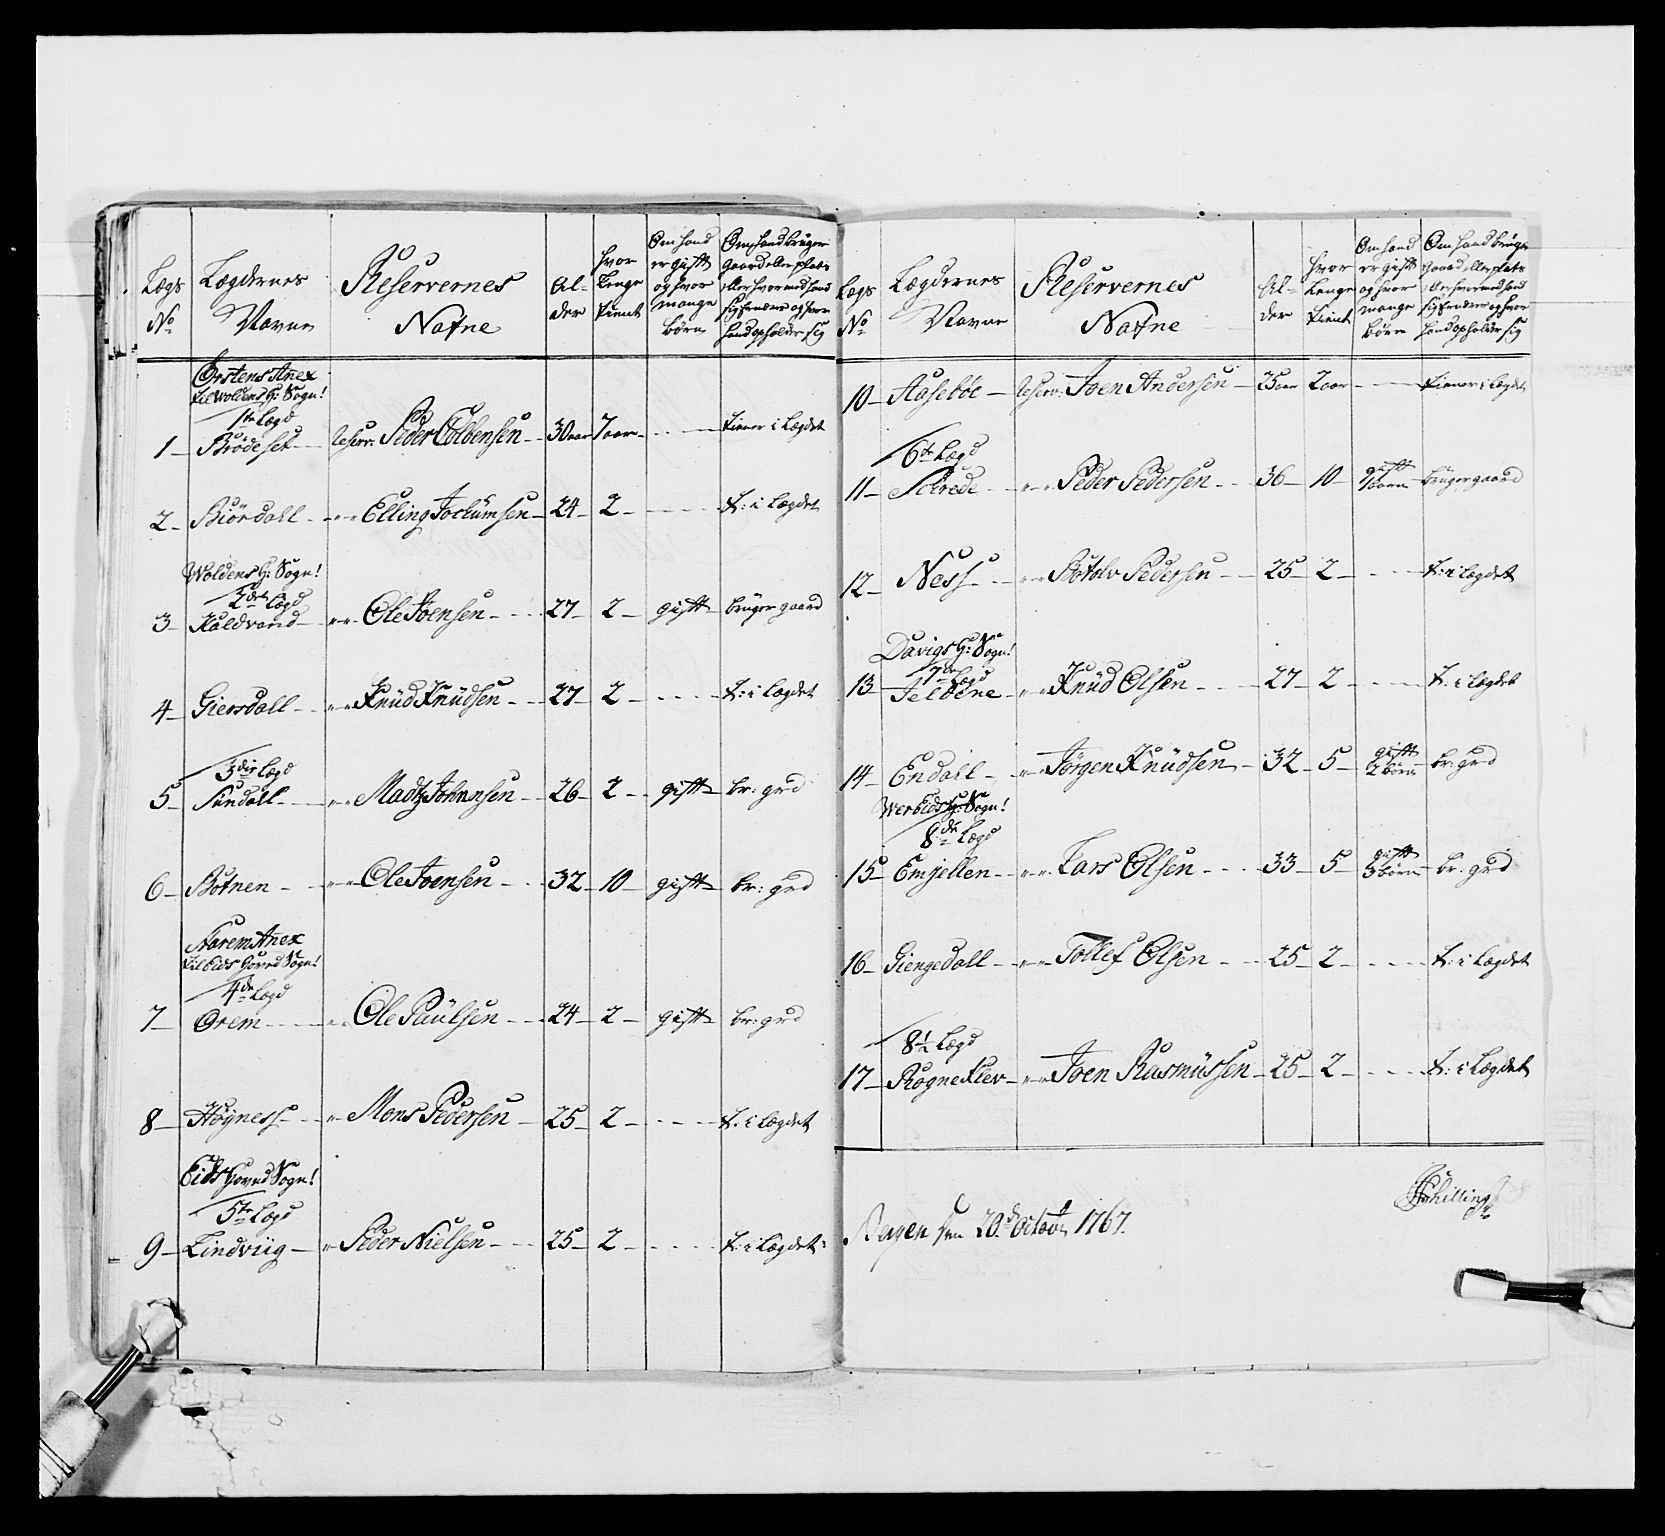 Lægs No Lægdernes Navne Reservernes Nafne Al-der hvor Lenge tient Om hand er gift og hvor mange börn Om hand brüger gaard eller plats eller hvormed hand sig ernærer og hvor hand opholder sig
Örstens Anex til Woldens H: Sogn!
1te Lægd
1 Brödeset reserv: Peder Colbensen 30 aar 7 aar tiener i Lægdet
2 Biördall Elling Jochümsen 24 2 t: i Lægdet
Woldens H: Sogn!
2det Lægd
3 Kaldvand Ole Joensen 27 2 gift brüger gaard
4 Giersdall Knüd Knüdsen 27 2 t: i Lægdet
3die Lægd
5 Sündall Madtz Johansen 26 2 gift br: grd
6 Botnen Ole Joensen 32 10 gift br: grd
Narem Anex til Eids Hoved Sogn!
4de Lægd
7 Orem Ole Paülsen 24 2 gift br: grd
8 Högness Mons Pedersen 25 2 t: i Lægdet
Eids Hoved Sogn!
5te Lægd
9 Lindviig Peder Nielsen 25 2 t: i Lægdet
Lægs No Lægdernes Navne Reservernes Nafne Al-der hvor Lenge tient Om hand er gift og hvor mange börn Om hand brüger gaard eller plats eller hvormed hand sig ernærer og hvor hand opholder sig
10 Aaseböe reserv: Joen Andersen 25 aar 2 aar tiener i Lægdet
6te Lægd
11 Schrede Peder Pedersen 36 10 gift barn brüger gaard
12 Ness Botolv Pedersen 25 2 t: i Lægdet
Davigs H: Sogn!
7de Lægd
13 Knüd Olsen 27 2 t: i Lægdet
14 Endall Jörgen Knüdsen 32 5 gift 2 börn br: grd
H: Sogn!
8de Lægd
15 Emjellen Lars Olsen 33 5 gift 3 börn br: grd
16 Giengedall Tollef Olsen 25 2 t: i Lægdet
8½ Lægd
17 Rogneklev Joen Rasmüssen 25 2 t: i Lægdet
Schilling
Bergen den 20de Octobr 1767.